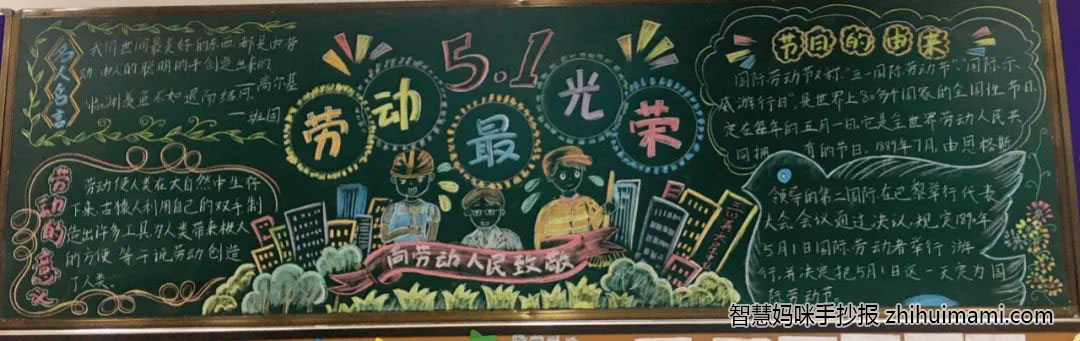 名人名言
我们世间最美好的东西，都是由劳
动、由人的聪明的手创造出来的
——高尔基
临渊羡鱼不如退而结网
——班固
劳动的意义
劳动使人类在大自然中生存
下来，古猿人利用自己的双手制
造出许多工具，为人类带来极大
的方便，等于说劳动创造
了人类。
5.1
劳动最光荣
向劳动人民致敬
节日的由来
国际劳动节又称"五一国际劳动节""国际示
威游行日"，是世界上80多个国家的全国性节日
定在每年的五月一日。它是全世界劳动人民共
同拥有的节日。1889年7月，由恩格斯
领导的第二国际在巴黎举行代表
大会会议通过决议，规定1890年
5月1日国际劳动者举行游
行，并决定把5月1日这一天定为国
际劳动节
智慧妈咪手抄报 zhihuimami.com